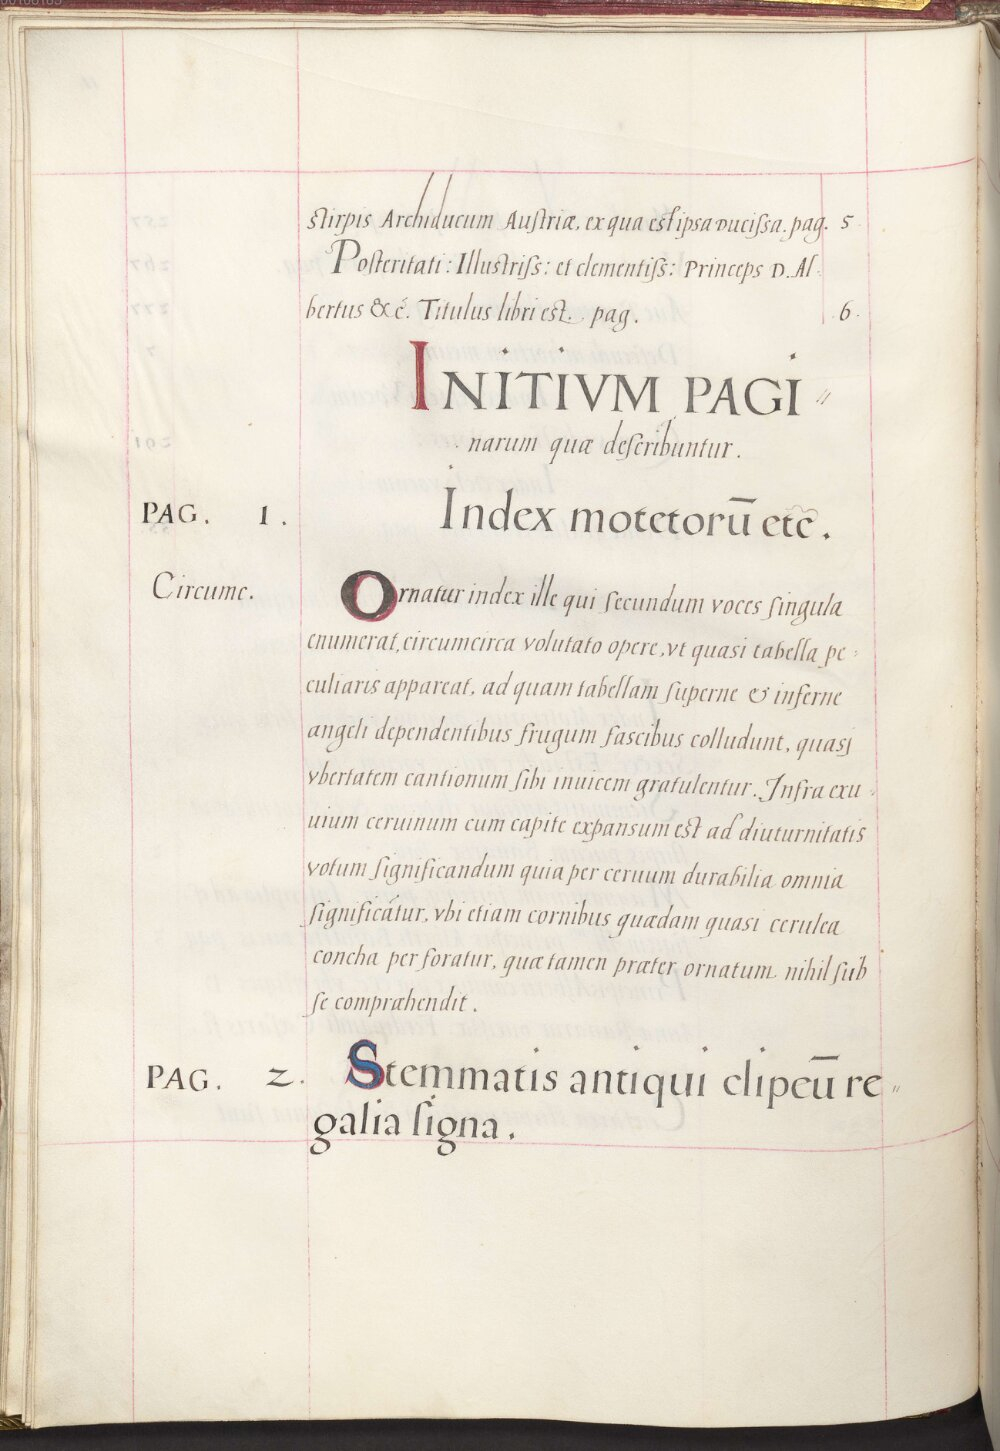 stirpis Archiducum Austriæ, ex qua est ipsa Ducissa. pag. 5
Posteritati: Illustriss: et clementiss: Princeps D. Al-
bertus &c. Titulus libri est. pag. 6.
INITIVM PAGI"
narum quæ describuntur.
PAG. 1. Index motetorū etc.
Circume. Ornatur index ille qui secundum voces singula
enumerat, circumcirca volutato opere, vt quasi tabella pe-
culiaris appareat, ad quam tabellam superne & inferne
angeli dependentibus frugum fascibus colludunt, quasj
vbertatem cantionum sibi inuicem gratulentur. Infra exu-
uium ceruinum cum capite expansum est ad diuturnitatis
votum significandum quia per ceruum durabilia omnia
significãtur, vbi etiam cornibus quædam quasi cerulea
concha perforatur, quæ tamen præter ornatum nihil sub
se compræhendit.
PAG. 2. Stemmatis antiqui clipeū re"
galia signa.